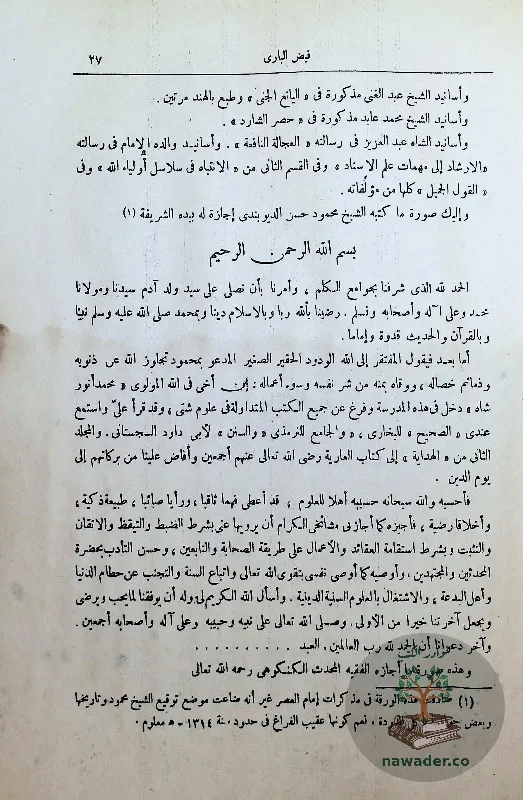 فيض البارى ٢٧
وأسانيد الشيخ عبد الغنى مذكورة فى « اليانع الجنى » وطبع بالهند مرتين .
وأسانيد الشيخ محمد عابد مذكورة فى « حصر الشارد » .
وأسانيد الشاه عبد العزيز فى رسالته « العجالة النافعة » . وأسانيد والده الإمام فى رسالته
« الارشاد إلى مهمات علم الاسناد » وفى القسم الثانى من « الانتباه فى سلاسل أولياء الله » وفى
« القول الجميل » كلها من مؤلفاته .
وإليك صورة ما كتبه الشيخ محمود حسن الديوبندى إجازة له بيده الشريفة (١)
بسم الله الرحمن الرحيم
الحمد لله الذى شرفنا بجوامع الكلم ، وأمرنا بأن نصلى على سيد ولد آدم سيدنا ومولانا
محمد وعلى آله وأصحابه ونسلم . رضينا بالله ربا وبالاسلام دينا وبمحمد صلى الله عليه وسلم نبيا
وبالقرآن والحديث قدوة وإماما .
أما بعد فيقول المفتقر إلى الله الودود الحقير الصغير المدعو بمحمود تجاوز الله عن ذنوبه
وذمائم خصاله ، ووقاه بمنه من شر نفسه وسوء أعماله : إن أخى فى الله المولوى « محمد أنور
شاه » دخل فى هذه المدرسة وفرغ عن جميع الكتب المتداولة فى علوم شتى ، وقد قرأ علىّ واستمع
عندى « الصحيح » للبخارى ، « والجامع للترمذى » « والسنن » لأبى داود السجستانى . والمجلد
الثانى من « الهداية » إلى كتاب العارية رضى الله تعالى عنهم أجمعين وأفاض علينا من بركاتهم إلى
يوم الدين .
فأحسبه والله سبحانه حسيبه أهلا للعلوم ، قد أعطى فهما ثاقبا ، ورأيا صائبا ، طبيعة ذكية ،
وأخلاقا رضية ، فأجيزه كما أجازنى مشائخى الكرام أن يرويها عنى بشرط الضبط والتيقظ والاتقان
والتثبت وبشرط استقامة العقائد والأعمال على طريقة الصحابة والتابعين ، وحسن التأدب بحضرة
المحدثين والمجتهدين ، وأوصيه كما أوصى نفسى بتقوى الله تعالى واتباع السنة والتجنب عن حطام الدنيا
وأهل البدعة ، والاشتغال بالعلوم السنية الدينية . وأسأل الله الكريم لى وله أن يوفقنا لما يحب ويرضى
ويجعل آخرتنا خيرا من الأولى . وصلى الله تعالى على نبيه وحبيبه وعلى آله وأصحابه أجمعين .
وآخر دعوانا أن الحمد لله رب العالمين . العبد . . . . . . . . . .
وهذه صورة ما أجازه الفقيه المحدث الكنكوهى رحمه الله تعالى
(١) هذه الورقة فى مذكرات إمام العصر غير أنه ضاعت موضع توقيع الشيخ محمود وتاريخها
وبعض نعم كونها عقيب الفراغ فى حدود سنة ١٣١٤ - ه معلوم .
نوادر الكتب
nawader.co